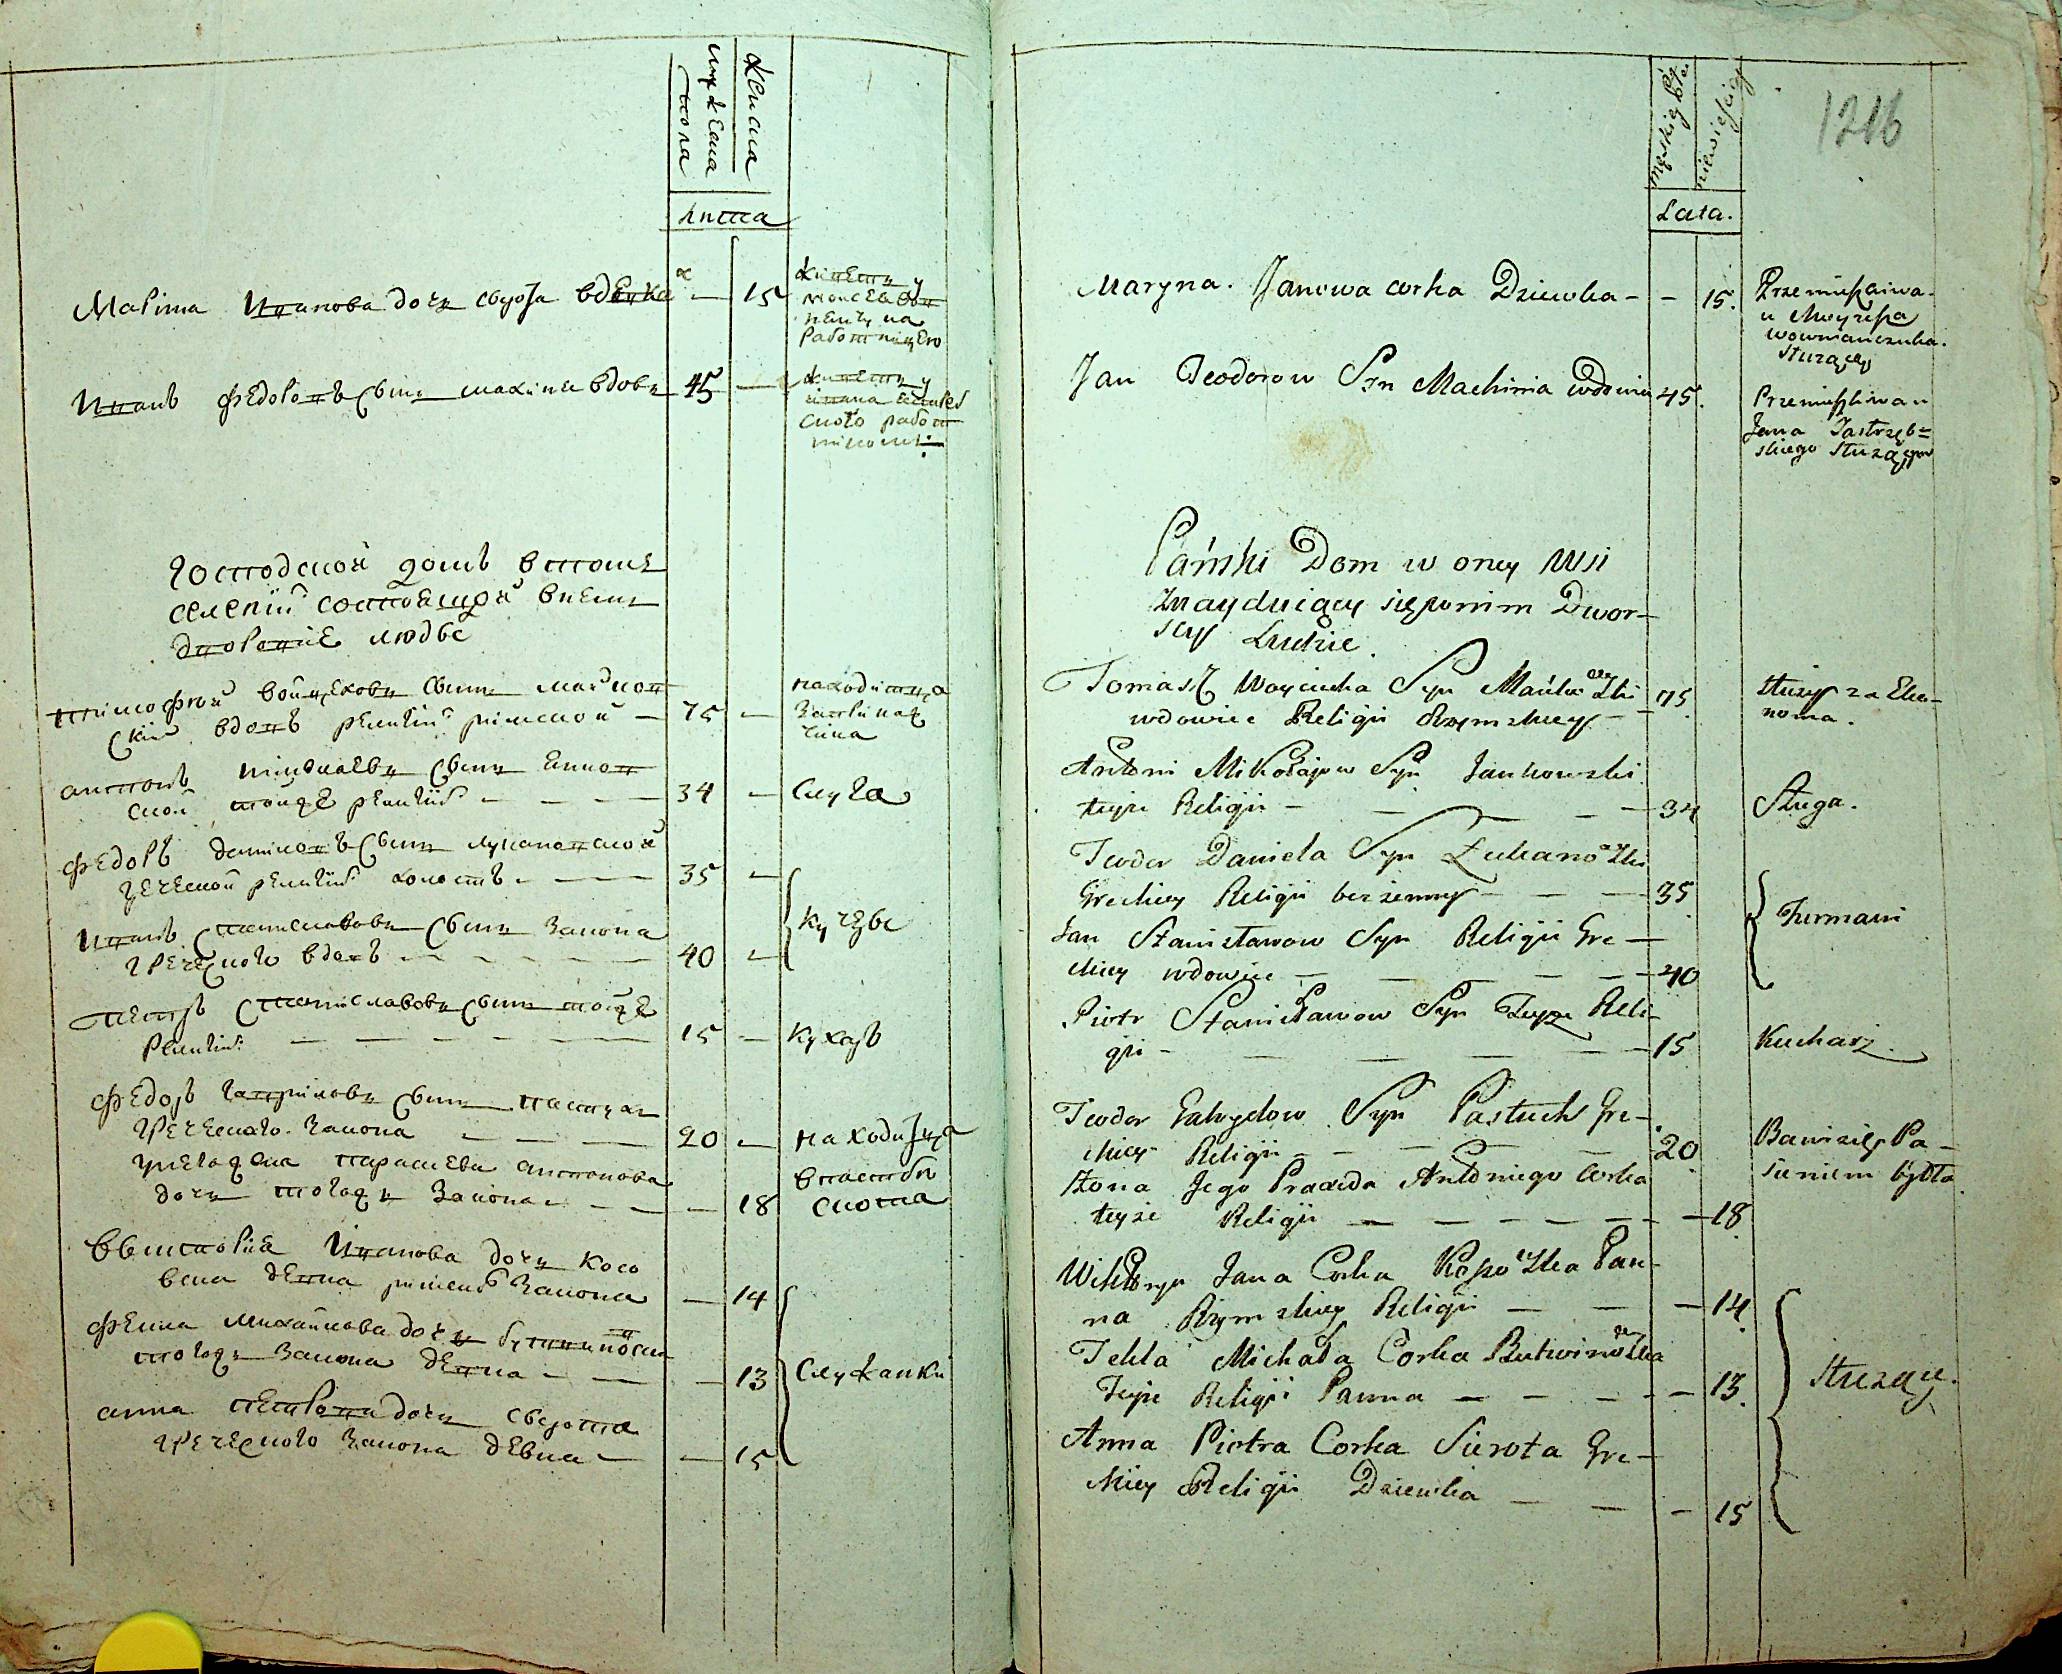 мужеска
пола
женска
лѣта
Марина Иванова дочь сирота вдевка — 15
живетъ у
работницею
Иванъ Федоровъ сынъ махиня вдовъ 45 —
живетъ у
работ
никомъ
господской домъ втомъ
селенїи состоящей внемъ
дворовїе людве
тимофей войцехови сынъ манков
скїй вдовъ религїи римской — 75 —
находитца
антонъ николаевъ сынъ янков
ской тойже религїи — — — 34 — слуга
федоръ даниловъ сынъ лукановской
греческой религїи холостъ — — 35 —
Иванъ станиславовъ сынъ закона
греческого вдовъ — — — 40 —
кучеры
петръ станиславовъ сынъ тойже
религїи — — — — 15 — кухаръ
федоръ гаприловъ сынъ пастухъ
греческого закона — — — 20 — находитца
унегожена параскева антонова
дочь тогожъ закона — — — 18
впастбѣ
скота
викторїя Иванова дочь косо
вска девка римско закона — 14
фекла михайлова дочь бутвиновска
тогожъ закона девка — — — 13
служанки
анна петрова дочь сирота
греческого закона девка — — 15
1216
męskiey
niewieściey
Lata.
Maryna. Janowa corka Dziewka - - 15.
Przemieszkaiwa.
u
Służący
Jan Teodorow Syn Machinia wdowiec 45.
Przemieszkiwa u
Jana Jastrzęb=
skiego Służącym
Pański Dom w oney Wsi
Znayduiący się w nim Dwor-
scy Ludzie.
Tomasz Woyciecha Syn Mańkowski
wdowiec Religii Rzymskiey - - 75
służy za Eko-
noma.
Antoni Mikołajow Syn Jankowski
teyże Religii - — — — 34
Sługa.
Teodor Daniela Syn Łukanowski
Greckiey Religii bezżenny - — — 35
Jan Stanisławow Syn Religii Gre —
ckiey wdowiec — — — — 40
Furmani
Piotr Stanisławow Syn Teyże Reli-
gii - — — — — 15
Kucharz.
Teodor Gabryelow Syn Pastuch Gre-
ckiey Religii — — — — 20
Bawi się Pa-
sieniem bydła.
Żona Jego Praxeda Antoniego Corka
teyże Religii — — — — — 18
Wiktorya Jana Corka Kossowska Pan-
na Rzymskiey Religii — — — 14.
Tekla Michała Corka Butwinowska
Teyże Religii Panna — — — — 13.
Służące.
Anna Piotra Corka Sierota Gre-
ckiey Religii Dziewka — — — 15